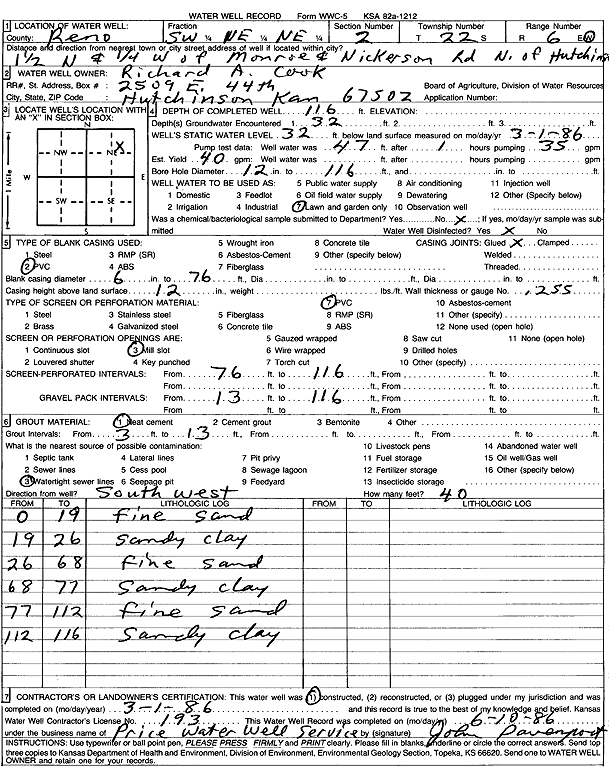 WATER WELL RECORD Form WWC-5 KSA 82a-1212
1 LOCATION OF WATER WELL: Fraction Section Number Township Number Range Number
County: Reno SW ¼ NE ¼ NE ¼ 2 T 22 S R 6 E/W
Distance and direction from nearest town or city street address of well if located within city?
1½ N & ¼ W of Monroe & Nickerson Rd N. of Hutchinson
2 WATER WELL OWNER: Richard A. Cook
RR#, St. Address, Box #: 2509 E. 44th Board of Agriculture, Division of Water Resources
City, State, ZIP Code: Hutchinson Kan 67502 Application Number:
3 LOCATE WELL'S LOCATION WITH AN "X" IN SECTION BOX:
N
NW NE X
W E
SW SE
S
1 Mile
4 DEPTH OF COMPLETED WELL 116 ft. ELEVATION:
Depth(s) Groundwater Encountered 1. 32 ft. 2. ft. 3. ft.
WELL'S STATIC WATER LEVEL 32 ft. below land surface measured on mo/day/yr 3-1-86
Pump test data: Well water was 47 ft. after 1 hours pumping 35 gpm
Est. Yield 40 gpm: Well water was ft. after hours pumping gpm
Bore Hole Diameter 12 in. to 116 ft., and in. to ft.
WELL WATER TO BE USED AS: 5 Public water supply 8 Air conditioning 11 Injection well
1 Domestic 3 Feedlot 6 Oil field water supply 9 Dewatering 12 Other (Specify below)
2 Irrigation 4 Industrial 7 Lawn and garden only 10 Observation well
Was a chemical/bacteriological sample submitted to Department? Yes No X; If yes, mo/day/yr sample was submitted
Water Well Disinfected? Yes X No
5 TYPE OF BLANK CASING USED: 5 Wrought iron 8 Concrete tile CASING JOINTS: Glued X Clamped
1 Steel 3 RMP (SR) 6 Asbestos-Cement 9 Other (specify below) Welded
2 PVC 4 ABS 7 Fiberglass Threaded
Blank casing diameter 6 in. to 76 ft., Dia in. to ft., Dia in. to ft.
Casing height above land surface 12 in., weight lbs./ft. Wall thickness or gauge No. .255
TYPE OF SCREEN OR PERFORATION MATERIAL: 7 PVC 10 Asbestos-cement
1 Steel 3 Stainless steel 5 Fiberglass 8 RMP (SR) 11 Other (specify)
2 Brass 4 Galvanized steel 6 Concrete tile 9 ABS 12 None used (open hole)
SCREEN OR PERFORATION OPENINGS ARE: 5 Gauzed wrapped 8 Saw cut 11 None (open hole)
1 Continuous slot 3 Mill slot 6 Wire wrapped 9 Drilled holes
2 Louvered shutter 4 Key punched 7 Torch cut 10 Other (specify)
SCREEN-PERFORATED INTERVALS: From 76 ft. to 116 ft., From ft. to ft.
From ft. to ft., From ft. to ft.
GRAVEL PACK INTERVALS: From 13 ft. to 116 ft., From ft. to ft.
From ft. to ft., From ft. to ft.
6 GROUT MATERIAL: 1 Neat cement 2 Cement grout 3 Bentonite 4 Other
Grout Intervals: From 3 ft. to 13 ft., From ft. to ft., From ft. to ft.
What is the nearest source of possible contamination: 10 Livestock pens 14 Abandoned water well
1 Septic tank 4 Lateral lines 7 Pit privy 11 Fuel storage 15 Oil well/Gas well
2 Sewer lines 5 Cess pool 8 Sewage lagoon 12 Fertilizer storage 16 Other (specify below)
3 Watertight sewer lines 6 Seepage pit 9 Feedyard 13 Insecticide storage
Direction from well? South west How many feet? 40
FROM TO LITHOLOGIC LOG FROM TO LITHOLOGIC LOG
0 19 fine sand
19 26 sandy clay
26 68 fine sand
68 77 Sandy clay
77 112 fine sand
112 116 sandy clay
7 CONTRACTOR'S OR LANDOWNER'S CERTIFICATION: This water well was (1) constructed, (2) reconstructed, or (3) plugged under my jurisdiction and was
completed on (mo/day/year) 3-1-86 and this record is true to the best of my knowledge and belief. Kansas
Water Well Contractor's License No. 193 This Water Well Record was completed on (mo/day/yr) 6-10-86
under the business name of Price Water Well Service by (signature) John Davenport
INSTRUCTIONS: Use typewriter or ball point pen, PLEASE PRESS FIRMLY and PRINT clearly. Please fill in blanks, underline or circle the correct answers. Send top
three copies to Kansas Department of Health and Environment, Division of Environment, Environmental Geology Section, Topeka, KS 66620. Send one to WATER WELL
OWNER and retain one for your records.